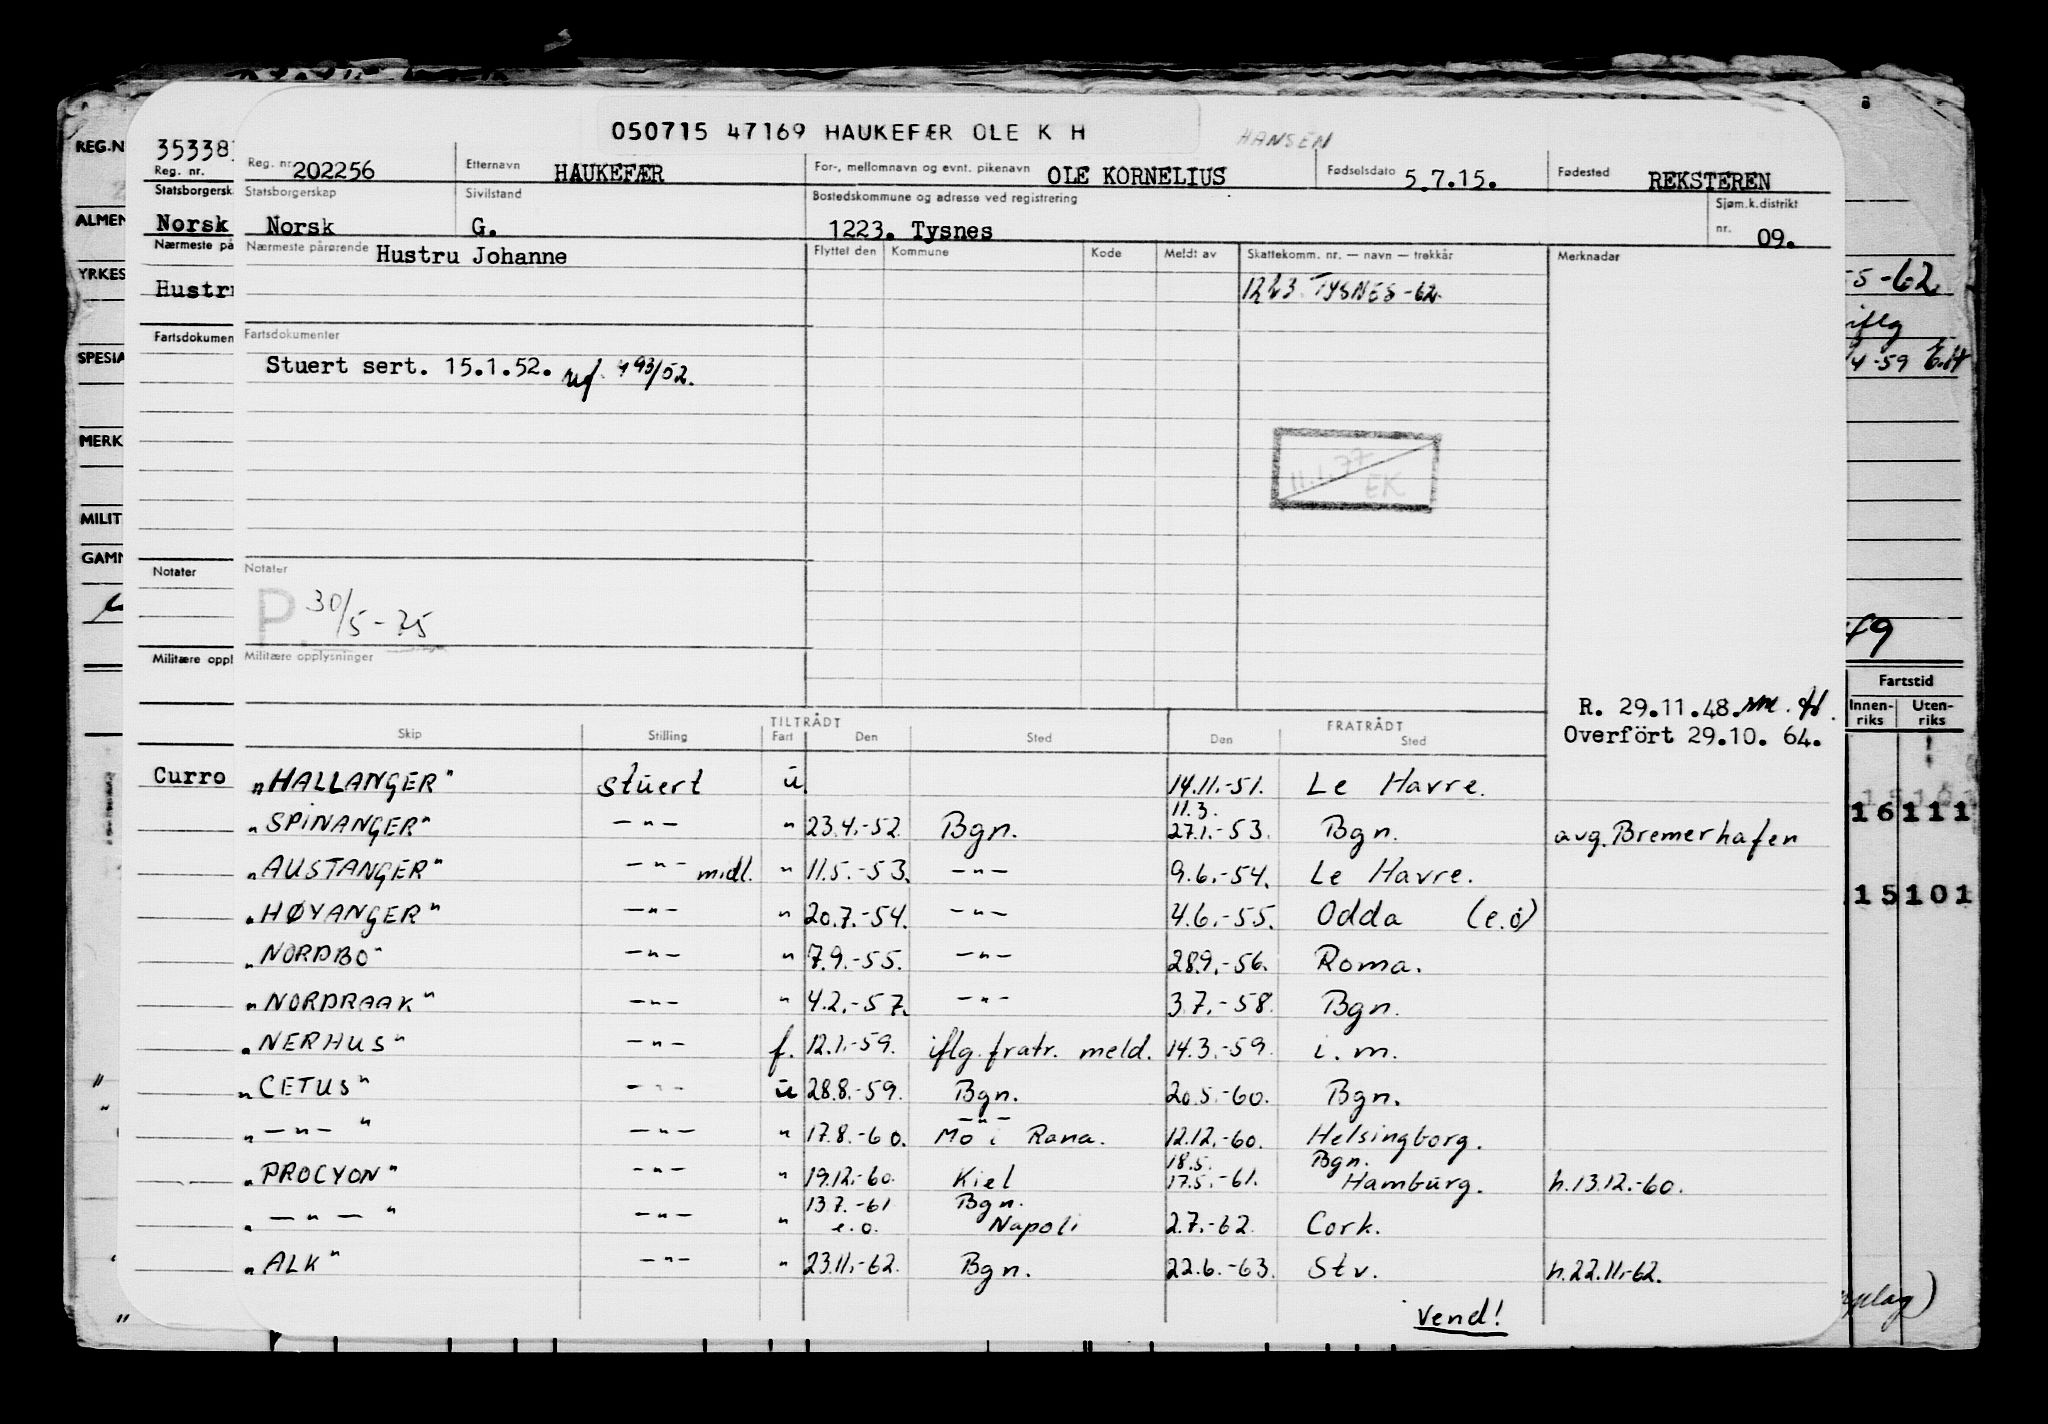 050715 47169 HAUKEFÆR OLE K H
HANSEN
REG.N
35338
Reg. nr.
Reg. nr. 202256 Etternavn HAUKEFÆR For-, mellomnavn og evnt. pikenavn OLE KORNELIUS Fødselsdato 5.7.15. Fødested REKSTEREN
Statsborgersk Statsborgerskap Sivilstand Bostedskommune og adresse ved registrering Sjøm.k.distrikt
ALMEN Norsk Norsk G. 1223. Tysnes nr. 09.
Nærmeste på Nærmeste pårørende Hustru Johanne Flyttet den Kommune Kode Meldt av Skattekomm. nr. — navn — trekkår Merknadar
YRKES Hustr 1223. TYSNES -62. 5-62
Fartsdokumen Fartsdokumenter iflg
SPESIA Stuert sert. 15.1.52. ref. 493/52. 4-59
MERK
11.1.77
EK
MILIT
GAMN
Notater Notater
P. 30/5-75
49
Militære oppl Militære opplysninger
Fartstid
R. 29.11.48. Innen-riks Uten-riks
TILTRÅDT FRATRÅDT Overfört 29.10. 64.
Skip Stilling Fart Den Sted Den Sted
Curro "HALLANGER" stuert u. 14.11.-51. Le Havre.
11.3.
"SPINANGER" —"— " 23.4.-52. Bgn. 27.1.-53. Bgn. avg. Bremerhafen 16 111
"AUSTANGER" —"— midl. " 11.5.-53. —"— 9.6.-54. Le Havre.
"HØYANGER" —"— " 20.7.-54. —"— 4.6.-55. Odda (e.o) 15 101
"NORDBO" —"— " 7.9.-55. —"— 28.9.-56. Roma.
"NORDRAAK" —"— " 4.2.-57. —"— 3.7.-58. Bgn.
"NERHUS" —"— f. 12.1.-59. iflg. fratr. meld. 14.3.-59. i.m.
"CETUS" —"— u 28.8.-59. Bgn. 20.5.-60. Bgn.
—"—
"—"—" —"— " 17.8.-60. Mo i Rana. 12.12.-60. Helsingborg.
18.5. Bgn.
"PROCYON" —"— " 19.12.-60. Kiel 17.5.-61. Hamburg. h.13.12.-60.
13.7.-61 Bgn.
"—"—" —"— " e.o. Napoli 2.7.-62. Cork.
"ALK" —"— " 23.11.-62. Bgn. 22.6.-63. Stv. h.22.11.-62.
Vend!